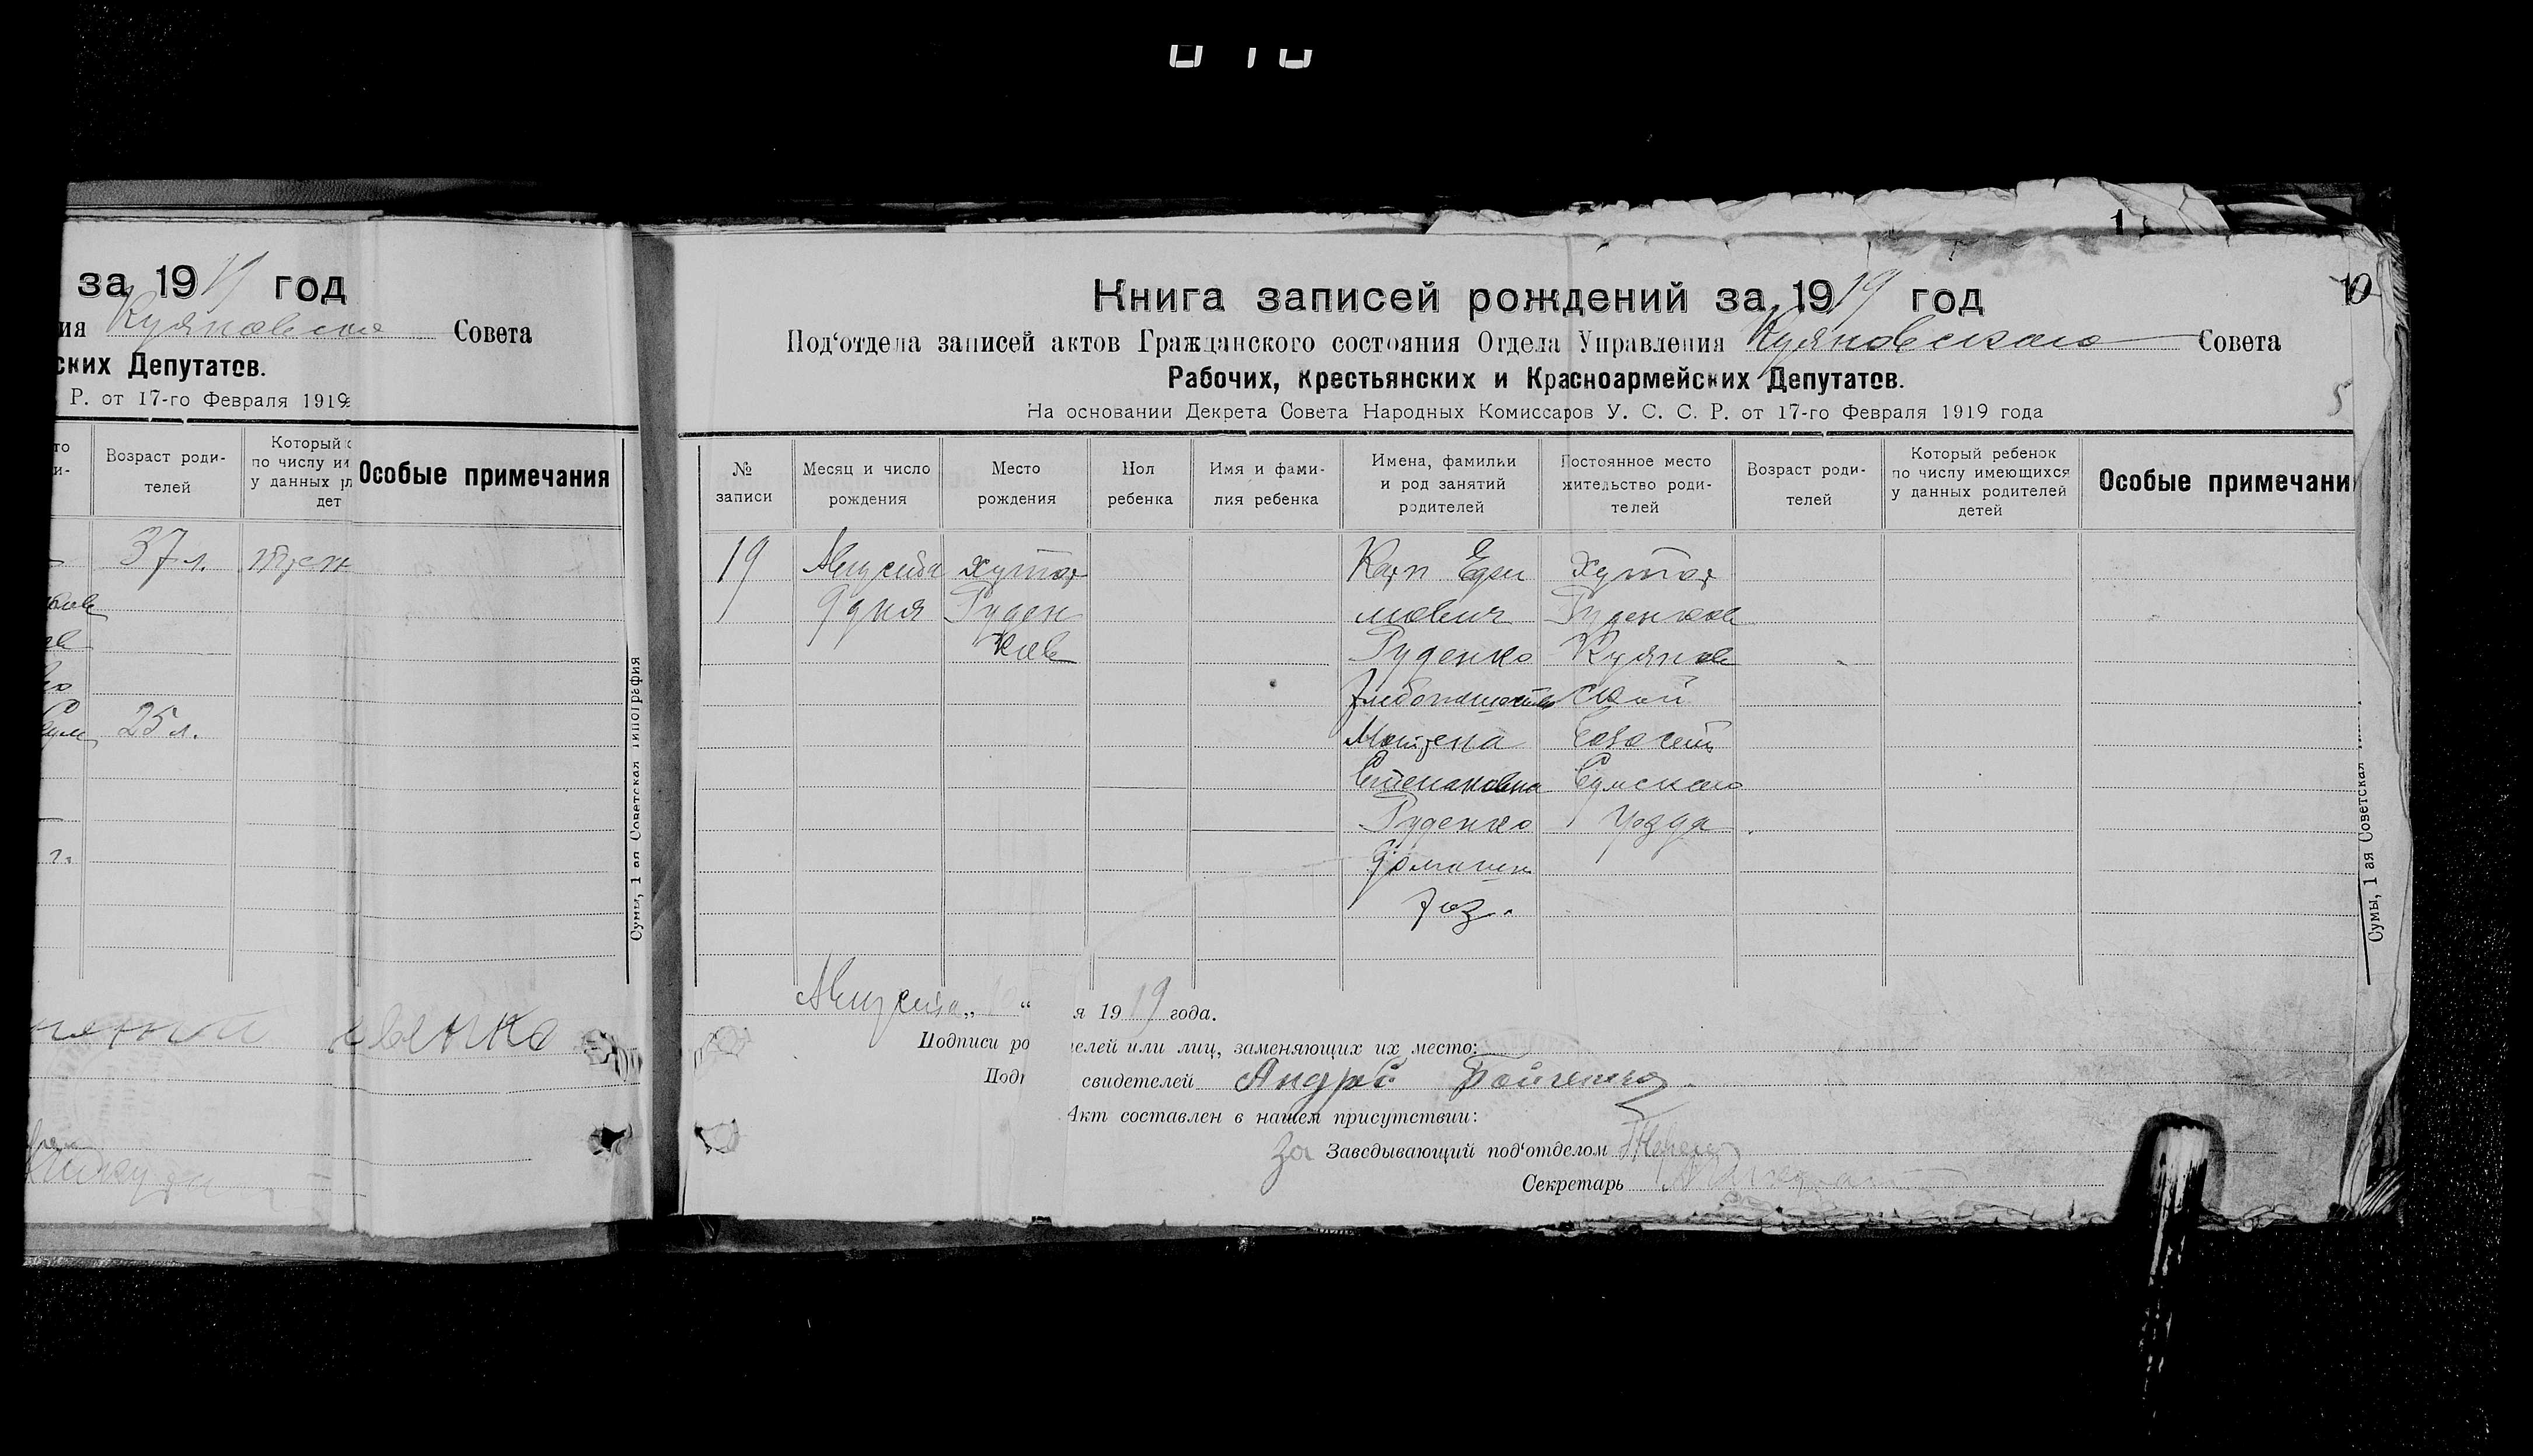 за 1919 год
ия Куяновского Совета
ских Депутатов.
Р. от 17-го Февраля 1919
Возраст роди-
телей
Который
по числу
у данных
дет
Особые примечания
37 л.
25 л.
Сумы, 1 ая Советская типография
10
Книга записей рождений за 1919 год
Под‘отдела записей актов Гражданского состояния Отдела Управления Куяновского Совета
Рабочих, Крестьянских и Красноармейских Депутатов.
На основании Декрета Совета Народных Комиссаров У. С. С. Р. от 17-го Февраля 1919 года
5
№
записи
Месяц и число
рождения
Место
рождения
Пол
ребенка
Имя и фами-
лия ребенка
Имена, фамилии
и род занятий
родителей
Постоянное место
жительство роди-
телей
Возраст роди-
телей
Который ребенок
по числу имеющихся
у данных родителей
детей
Особые примечани
19 Августа хутор Карп Ефи хутор
9 дня Руден мович Руденков
ков Руденко Куянов
хлебопашест ской
Матрена
Степановна Сумского
Руденко уезда
Домашн
хоз.
Августа „ “ я 1919 года.
Подписи ро елей или лиц, заменяющих их место:
Под свидетелей Андрей Бойченко
Акт составлен в нашем присутствии:
За Заведывающий под‘отделом
Секретарь
Сумы, 1 ая Советская